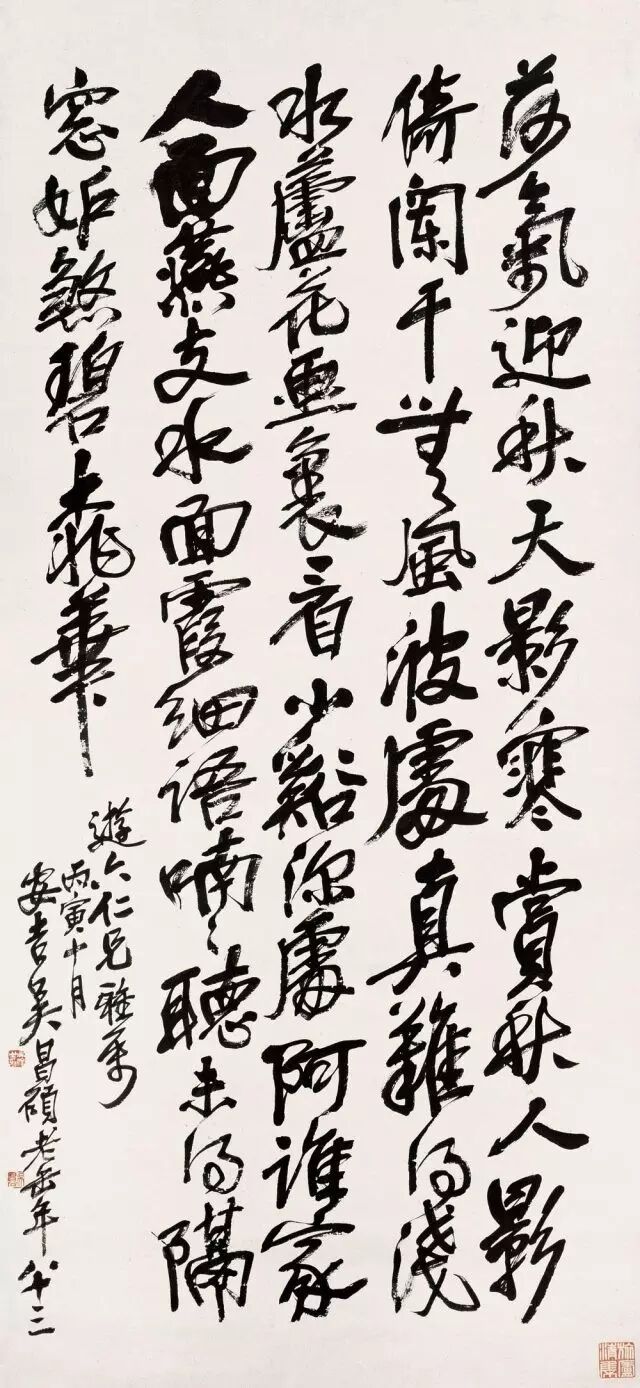 荷氣迎秋天影寒賞秋人影
倚闌干無風波處真難得淺
水蘆花畫裏看小谿深處阿誰家
人面燕支水面霞細語喃〻聽未得隔
窓妬煞碧桃華
遊六仁兄雅屬
丙寅十月
安吉吴昌碩老缶年八十三